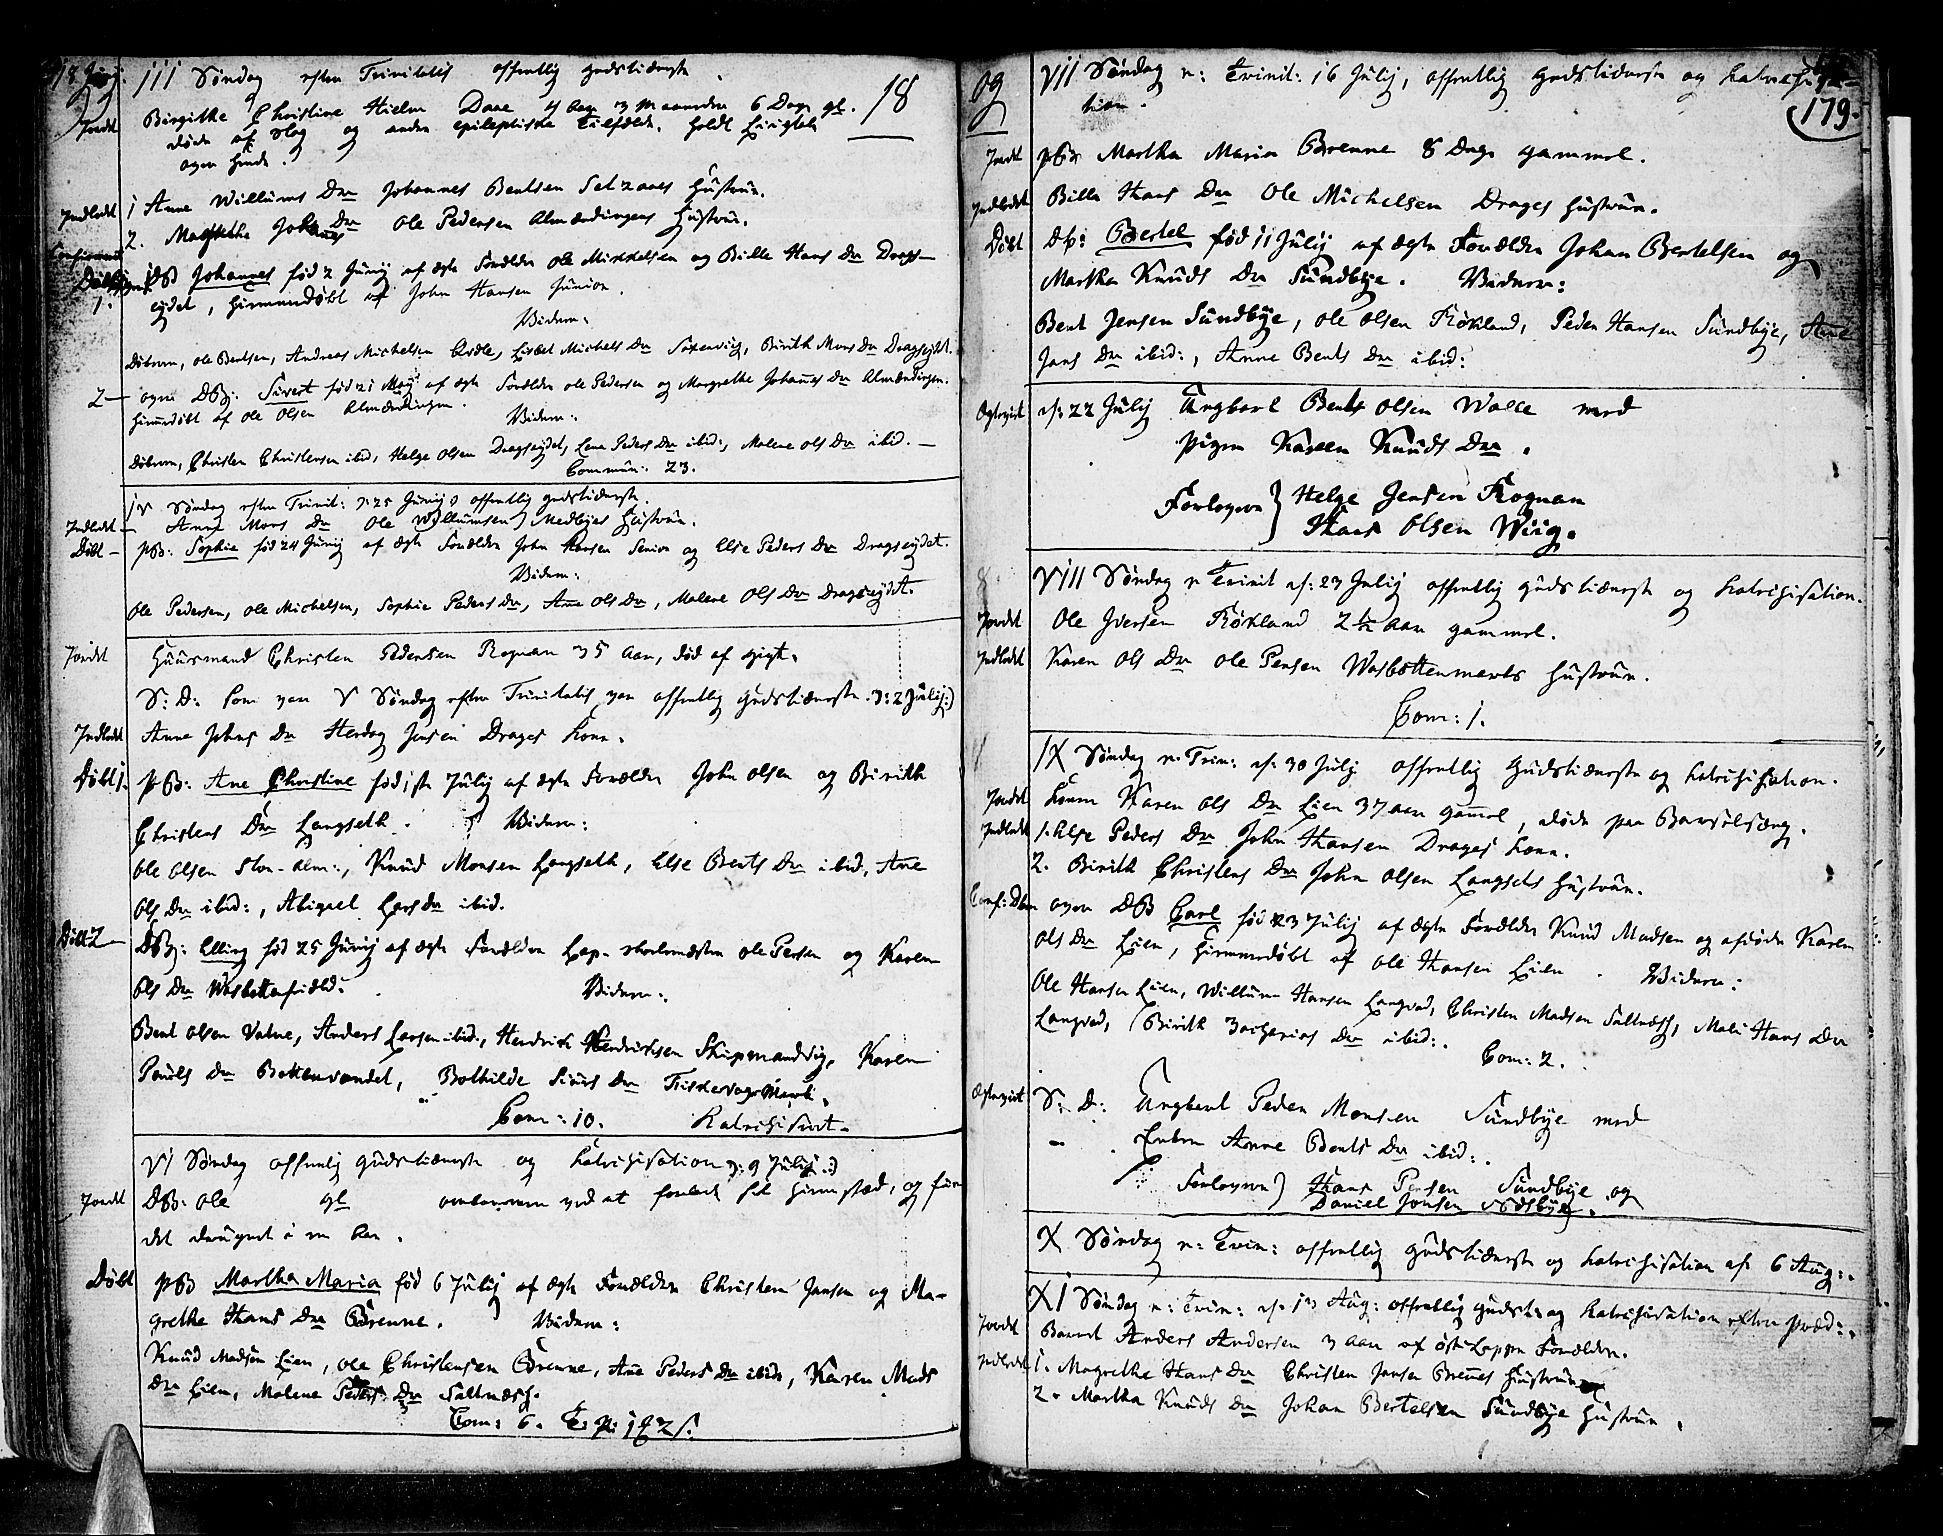 18 Junj. III Søndag efter Trinitatis offentlig gudstieneste.
Jordet Birgithe Christine Hielm Dave 4 Aar 3 Maaneder 6 Dage gl. 18
døde af slag og andre epileptiske Tilfælde. holdt Liigtale
over hende.
Indledt 1 Anne Willums Dtr Johannes Bentsen Saltaaes hustrue.
2. Magrethe Johannes Dtr Ole Pedersen Almændingens hustrue.
Confirmeret
Døbt 1. DB Johannes fød 2 Junij af ægte Forældre Ole Mikkelsen og Bille Hans Dtr Drags-
eydet, hiemmedøbt af John Hansen Junior.
Vidner:
Døberen, Ole Bentsen, Andreas Michelsen, Lisbet Michels Dtr Saxenvig, Birith Mons Dtr Dragseydet.
2 — ogsaa DB. Sivert fød 21 Maij af ægte Forældre Ole Pedersen og Margrethe Johannes Dtr Almændingen.
hiemmedøbt af Ole Olsen Almændingen. Vidner:
Døberen, Christen Christensen ibid, Helge Olsen Dragseydet, Lene Peders Dtr ibid:, Malene Ols Dtr ibid. —
Commun: 23.
IV Søndag efter Trinit: 25 Junij offentlig gudstieneste.
Indledt — Anne Mons Dtr Ole Willumsen Medbyes hustrue.
Døbt — pB: Sophie fød 24 Junij af ægte Forældre John Hansen Senior og Else Peders Dtr Dragseydet.
Vidner:
Ole Pedersen, Ole Michelsen, Sophie Peders Dtr, Ane Ols Dtr, Malene Ols Dtr Dragseydet.
Jordet Huusmand Christen Pedersen Rognan 35 Aar, død af gigt.
S: D: som var V Søndag efter Trinitatis var offentlig gudstieneste. 2 Julij:)
Indledt Anne Johns Dtr Herdag Jensen Drages Kone.
Døbt 1. pB: Ane Christine fød 1ste Julij af ægte Forældre John Olsen og Birith
Christens Dtr Langseth. Vidner:
Ole Olsen Stor-Alm:, Knud Monsen Langseth, Else Bents Dtr ibid, Ane
Ols Dtr ibid:, Abigael Lars Dtr ibid.
Døbt 2 — DB: Elling fød 25 Junij af ægte Forældre Lap-skolemester Ole Persen og Karen
Ols Dtr Wasbottenfield: Vidner:
Bent Olsen Vatne, Anders Larsen ibid:, Hendrich Hendrichsen Skipmandvig, Karen
Pouls Dtr Bottenvandet, Bothilde Siurs Dtr Fiskevaagmark.
Com: 10. Katechiseret.
VI Søndag offentlig gudstieneste og Katechisation 9 Julij:)
Jordet DB: Ole gl omkommen ved at forlade sit hiemsted, og fun-
det druknet i en Aae.
Døbt pB Martha Maria fød 6 Julij af ægte Forældre Christen Jensen og Ma-
grethe Hans Dtr Brenne. Vidner:
Knud Madsen Lien, Ole Christensen Brenne, Ane Peders Dtr ibid, Karen Mads
Dtr Lien, Malene Peders Dtr Saltnæsh.
Com: 6.
og VII Søndag e: Trinit: 16 Julij, offentlig gudstieneste og Katechisa-
tion. 179.
Jordet pB Martha Maria Brenne 8 Dage gammel.
Indledt Bille Hans Dtr Ole Michelsen Drages hustrue.
Døbt DB: Bertel fød 11 Julij af ægte Forældre Johan Bertelsen og
Martha Knuds Dtr Sundbye. Vidner:
Bent Jensen Sundbye, Ole Olsen Røkland, Peder Hansen Sundbye, Ane
Jens Dtr ibid:, Anne Bents Dtr ibid:
Ægteviet d: 22 Julij Ungkarl Bent Olsen Walle med
pigen Karen Knuds Dtr.
Forlovere } Helge Jensen Rognan
Hans Olsen Wiig.
VIII Søndag e Trinit d: 23 Julij offentlig gudstieneste og Katechisation.
Jordet Ole Iversen Røkland 2 1/2 Aar gammel.
Indledt Karen Ols Dtr Ole Persen Wasbottenmarks hustrue.
Com: 1.
IX Søndag e: Trin: d: 30 Julij offentlig gudstieneste og Katechisation.
Jordet Konen Karen Ols Dtr Lien 37 Aar gammel, døde paa Barselseng.
Indledt 1. Else Peders Dtr John Hansen Drages Kone.
2. Birith Christens Dtr John Olsen Langsets hustrue.
Conf: Dben ogsaa DB Carl fød 23 Julij af ægte Forældre Knud Madsen og afdøde Karen
Ols Dtr Lien, hiemmedøbt af Ole Hansen Lien. Vidner:
Ole Hansen Lien, Willum Hansen Langvad, Christen Madsen Saltnæsh, Mali Hans Dtr
Langvad, Birith Zacharias Dtr ibid:.
Com: 2.
Ægteviet S: D: Ungkarl Peder Monsen Sundbye med
Enken Anne Bents Dtr ibid:.
Forlovere } Hans Persen Sundbye og
Daniel Jensen Sundbye.
X Søndag e: Trin: offentlig gudstieneste og Katechisation d: 6 Aug:.
XI Søndag e: Trin: d: 13 Aug: offentlig gudst: og Katechisation efter Præd:.
Jordet Barnet Anders Andersen 3 Aar af øst Lappe Forældre.
Indledt 1. Magrethe Hans Dtr Christen Jensen Brenes hustrue
2. Martha Knuds Dtr Johan Bertelsen Sundbye hustrue.